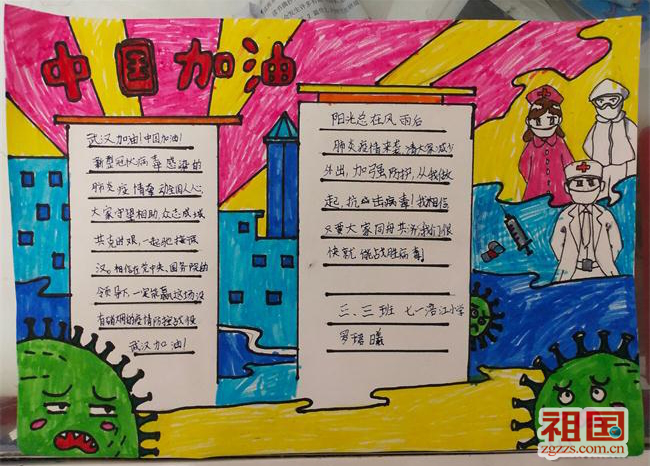 中国加油
武汉加油！中国加油！
新型冠状病毒感染的
肺炎疫情牵动全国人心，
大家守望相助、众志成城
共克时艰，一起驰援武
汉。相信在党中央、国务院的
领导下，一定能赢这场没
有硝烟的疫情防控战役
武汉加油！
阳光总在风雨后
肺炎疫情来袭，请大家减少
外出，加强防护，从我做
起，抗击病毒！我相信
只要大家同舟共济，我们很
快就能战胜病毒
三、三班 七一滘江小学
罗 曦
祖国
zgzzs.com.cn